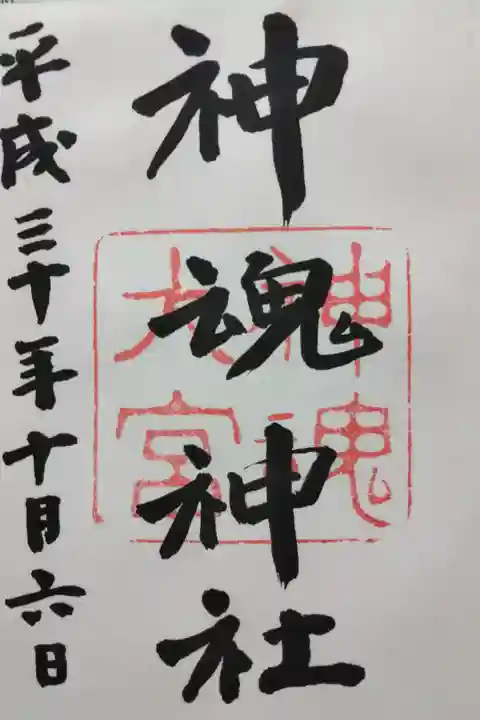 神魂神社
神魂
大宮
平成三十年十月六日